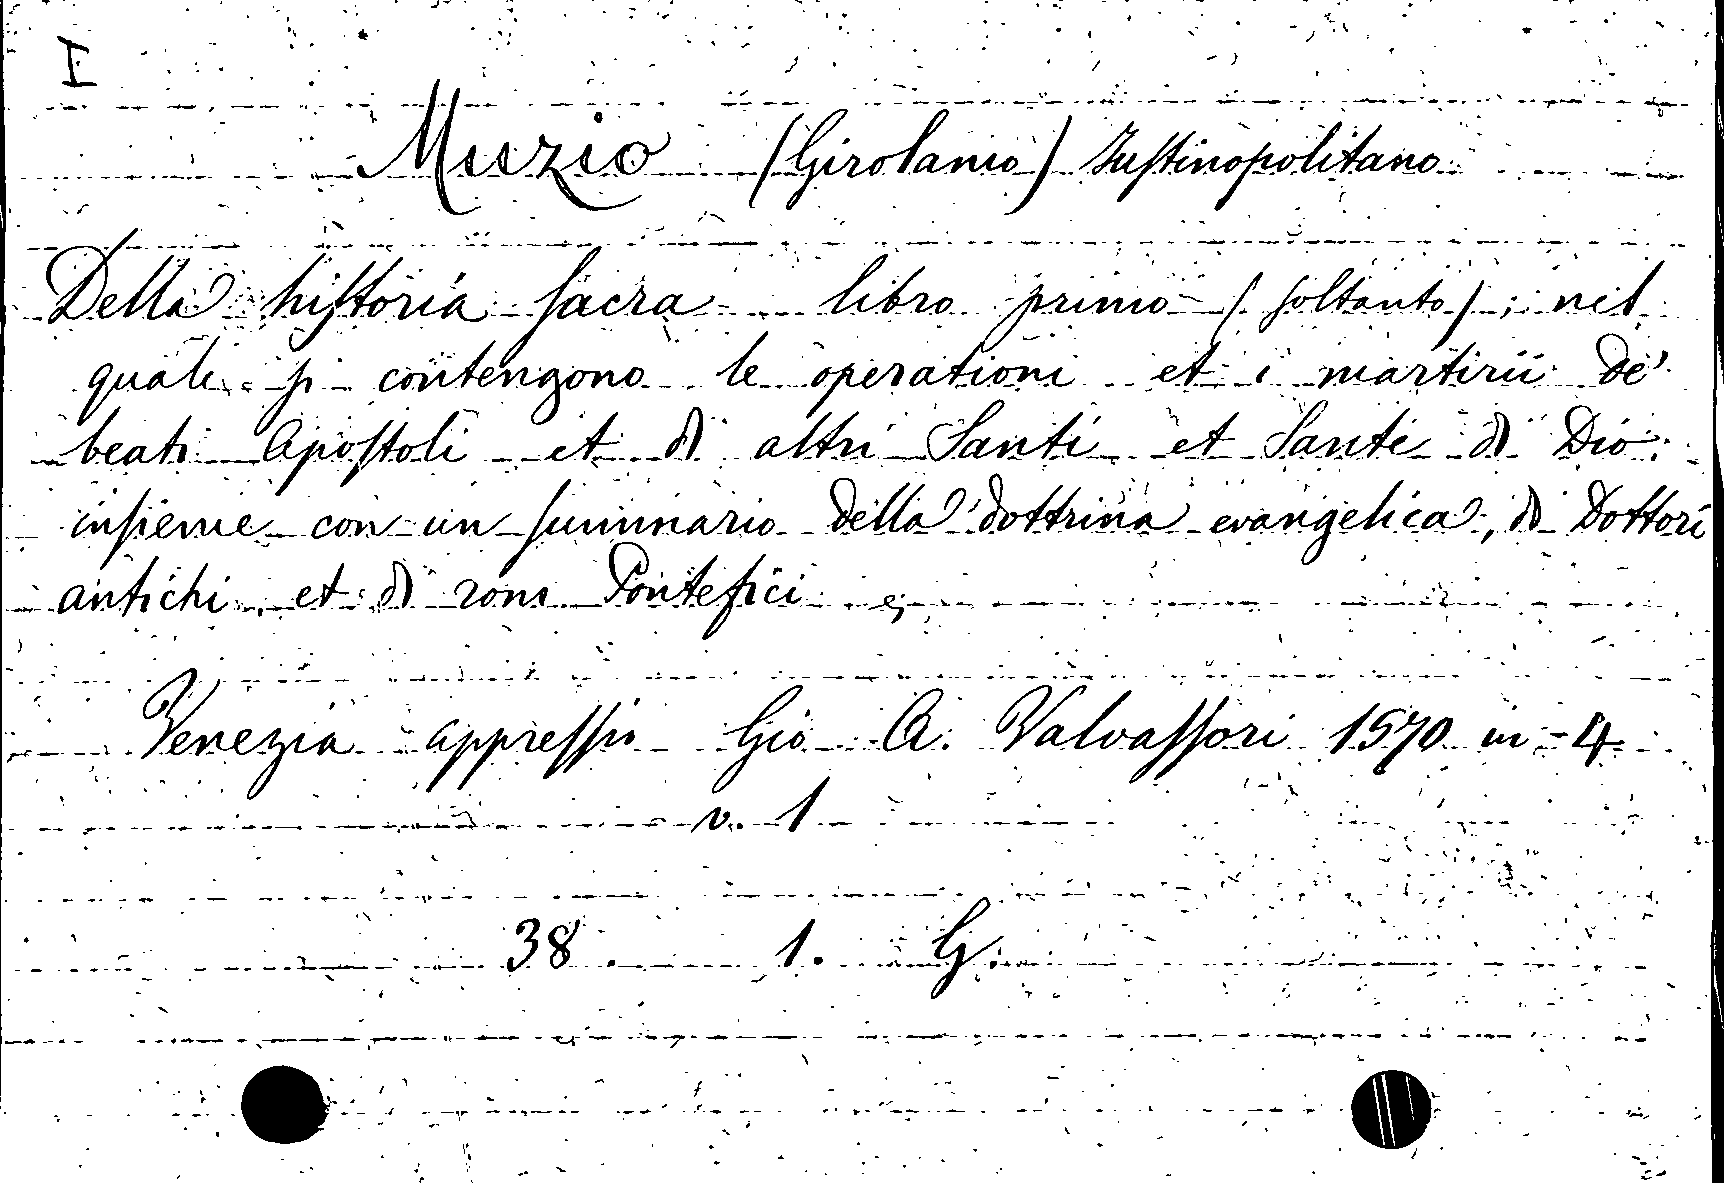 I
Muzio (Girolamo) Iustinopolitano
Della historia sacra libro primo (soltanto); nel
quale si contengono le operationi et i martirii de'
beati Apostoli et di altri Santi et Sante di Dio
insieme con un summario della dottrina evangelica, di Dottori
antichi et di romi Pontefici
Venezia appresso Gio A. Valvassori 1570 in-4
v. 1
38. 1. G.